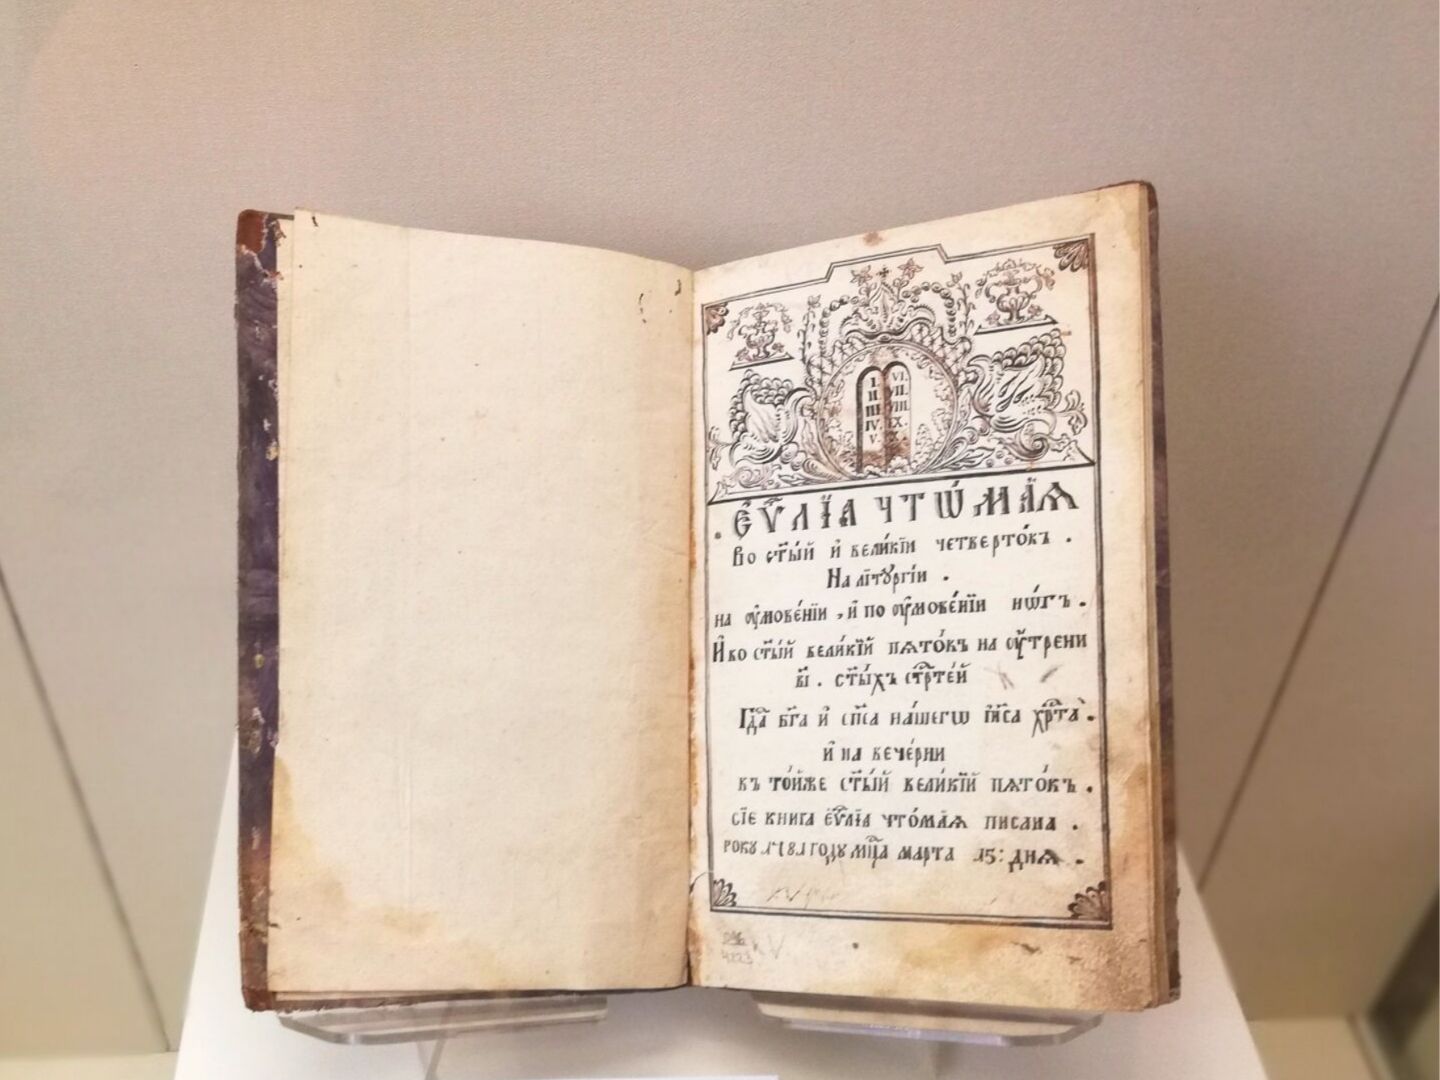 I. VI.
II. VII.
III. VIII.
IV. IX.
V. X.
Є҆Ѵ҃ЛЇА ЧТѠ́МАѦ
Во ст҃ы́й и҆ вели́кїи четверто́къ .
На літꙋргі́и .
на оу҆мове́нїи , и҆ по оу҆мове́нїи нѡ́гъ .
И҆ во ст҃ы́й вели́кїй пѧто́къ на оу҆́трени
в҃і . ст҃ы́хъ стр҃те́й
Гд҃а бг҃а и҆ сп҃са на́шегѡ і҆и҃са хр҃та̀ .
и҆ на вече́рни
къ то́йже ст҃ы́й вели́кїй пѧто́къ .
сїе книга є҆ѵ҃лїа что́маѧ писана .
рокꙋ 1781 годꙋ мц҃а марта 15: днѧ .
4223